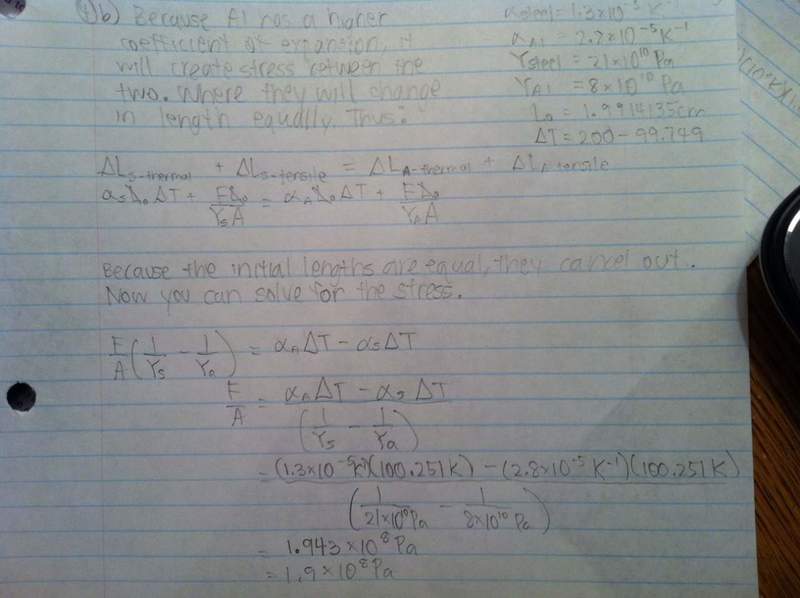 b) Because Al has a higher
coefficient of expansion, it
will create stress between the
two. Where they will change
in length equally. Thus:
αsteel = 1.3×10⁻⁵ K⁻¹
αAl = 2.2×10⁻⁵ K⁻¹
Ysteel = 21×10¹⁰ Pa
YAl = 8×10¹⁰ Pa
L₀ = 1.9914135cm
ΔT = 200 - 99.749
ΔLS-thermal + ΔLS-tensile = ΔLA-thermal + ΔLA-tensile
αS L₀ ΔT + FL₀/YSA = αA L₀ ΔT + FL₀/YAA
Because the initial lengths are equal, they cancel out.
Now you can solve for the stress.
F/A (1/Ys - 1/Ya) = αAΔT - αSΔT
F/A = (αAΔT - αSΔT)/(1/Ys - 1/Ya)
= ((1.3×10⁻⁵ K⁻¹)(100.251K) - (2.8×10⁻⁵ K⁻¹)(100.251K))/(1/21×10¹⁰Pa - 1/8×10¹⁰Pa)
= 1.943×10⁸ Pa
= 1.9×10⁸ Pa